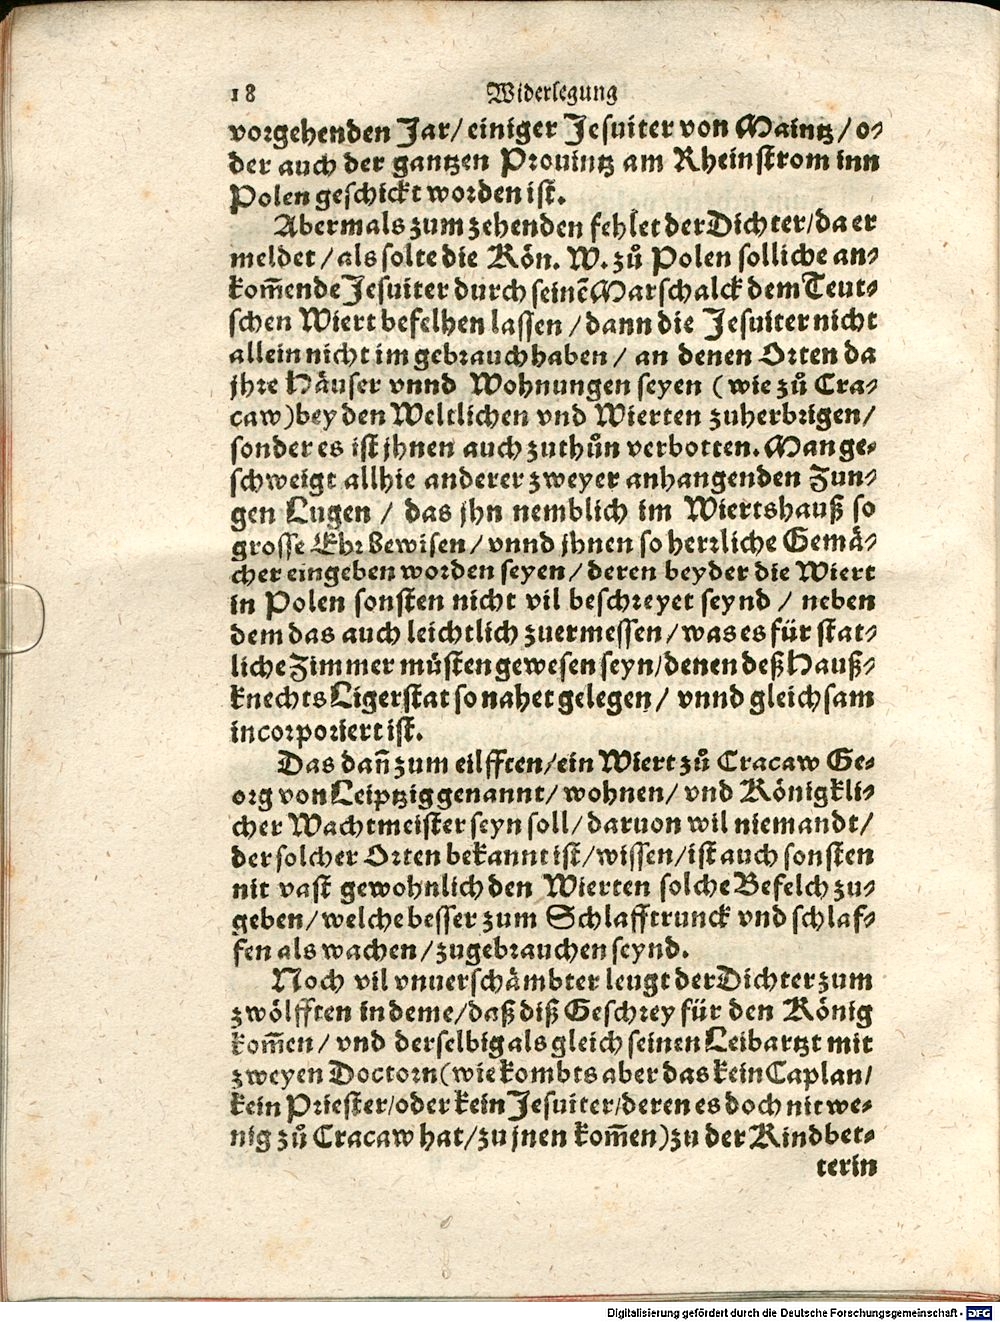 18 Widerlegung
vorgehenden Jar/ einiger Jesuiter von Maintz/ o⸗
der auch der gantzen Prouintz am Rheinstrom inn
Polen geschickt worden ist.
Abermals zum zehenden fehlet der Dichter/ da er
meldet/ als solte die Kön. W. zů Polen solliche an⸗
kom̃ende Jesuiter durch seinẽ Marschalck dem Teut⸗
schen Wiert befelhen lassen/ dann die Jesuiter nicht
allein nicht im gebrauch haben/ an denen Orten da
jhre Häuser vnnd Wohnungen seyen (wie zů Cra⸗
caw) bey den Weltlichen vnd Wierten zuherbrigen/
sonder es ist jhnen auch zuthůn verbotten. Man ge⸗
schweigt allhie anderer zweyer anhangenden Zun⸗
gen Lugen/ das jhn nemblich im Wiertshauß so
grosse Ehr Bewisen/ vnnd jhnen so herrliche Gemä⸗
cher eingeben worden seyen/ deren beyder die Wiert
in Polen sonsten nicht vil beschreyet seynd/ neben
dem das auch leichtlich zuermessen/ was es für stat⸗
liche Zimmer müsten gewesen seyn/ denen deß Hauß⸗
knechts Ligerstat so nahet gelegen/ vnnd gleichsam
incorporiert ist.
Das dañ zum eilfften/ ein Wiert zů Cracaw Ge⸗
org von Leiptzig genannt/ wohnen/ vnd Königkli⸗
cher Wachtmeister seyn soll/ daruon wil niemandt/
der solcher Orten bekannt ist/ wissen/ ist auch sonsten
nit vast gewohnlich den Wierten solche Befelch zu⸗
geben/ welche besser zum Schlafftrunck vnd schlaf⸗
fen als wachen/ zugebrauchen seynd.
Noch vil vnuerschämbter leugt der Dichter zum
zwölfften in deme/ daß diß Geschrey für den König
kom̃en/ vnd derselbig als gleich seinen Leibartzt mit
zweyen Doctorn (wie kombts aber das kein Caplan/
kein Priester/ oder kein Jesuiter/ deren es doch nit we⸗
nig zů Cracaw hat/ zu jnen kom̃en) zu der Kindbet⸗
terin
Digitalisierung gefördert durch die Deutsche Forschungsgemeinschaft - DFG